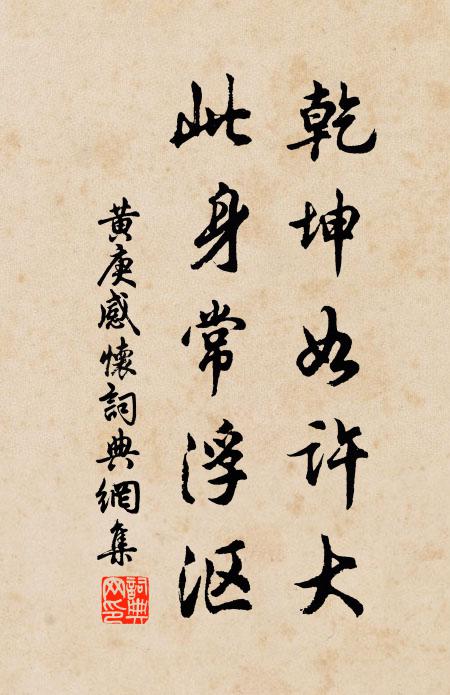 乾坤如许大
此身常浮沤
黄庚感懷詞典網集
詞典網印